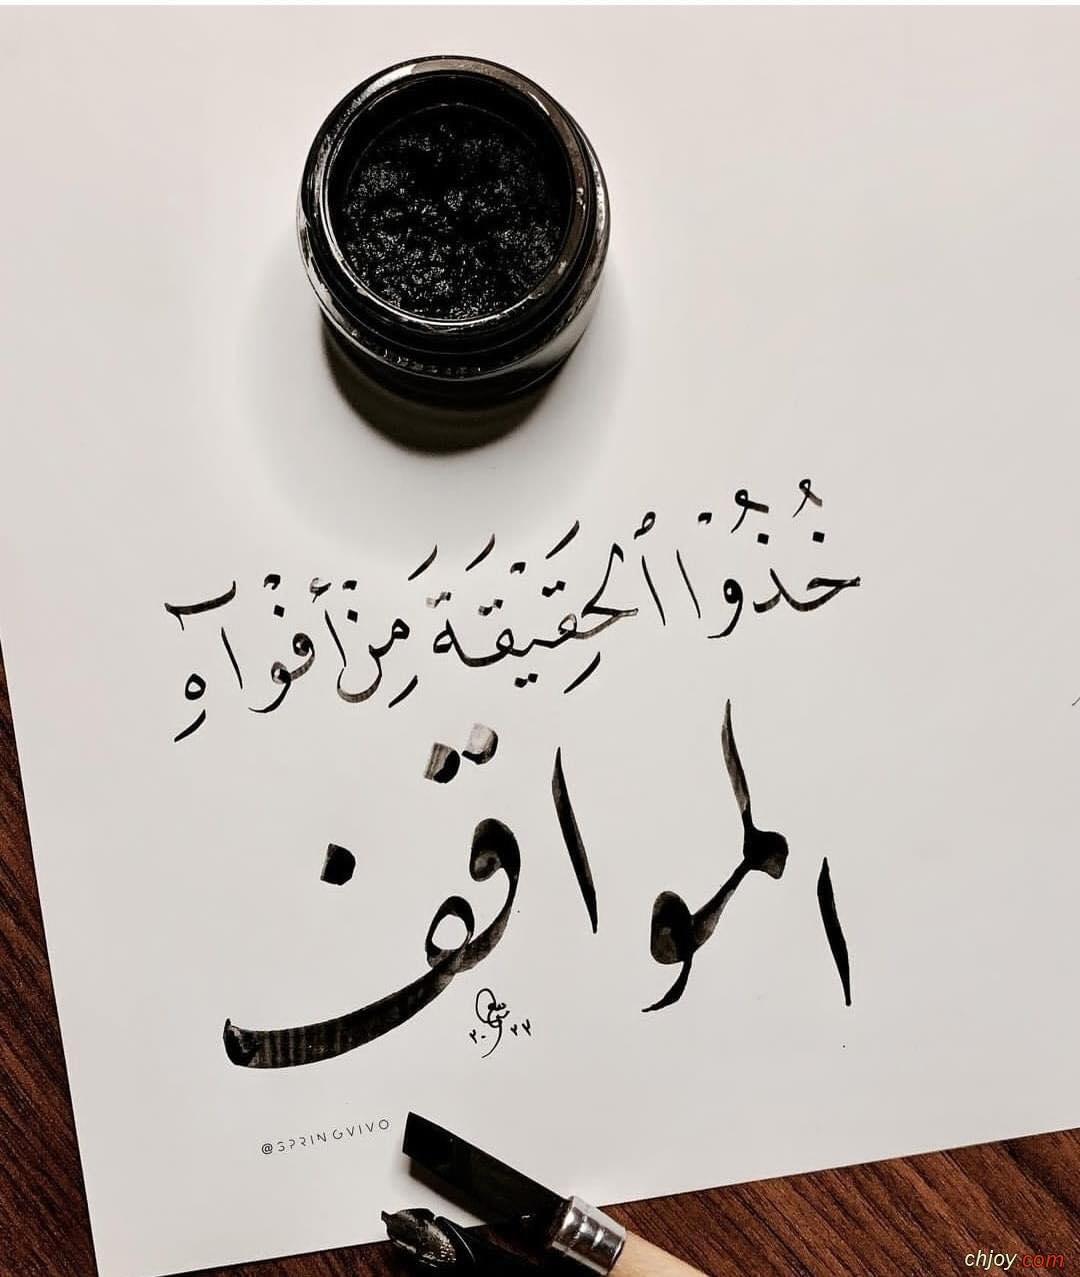 خُذُوْا ٱلحَقِيْقَةَ مِنْ أَفْوَاهِ
المواقف
٢٠٢٢
@SPRINGVIVO
chjoy.com